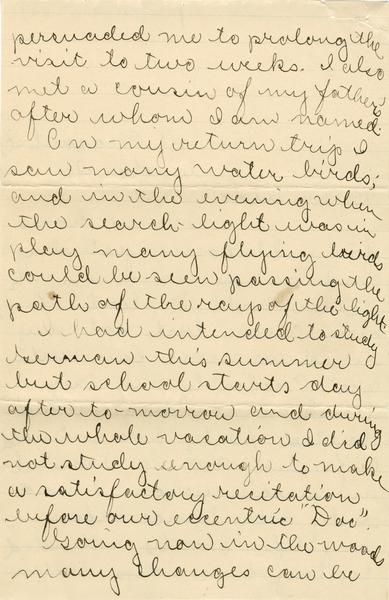 persuaded me to prolong the
visit to two weeks. I also
met a cousin of my father,
after whom I am named.
On my return trip I
saw many water birds;
and in the evening when
the search light was in
play many flying birds
could be seen passing the
path of the rays of the light.
I had intended to study
German this summer
but school starts day
after to-morrow and during
the whole vacation I did
not study enough to make
a satisfactory recitation
before our eccentric "Doc".
Going now in the woods
many changes can be